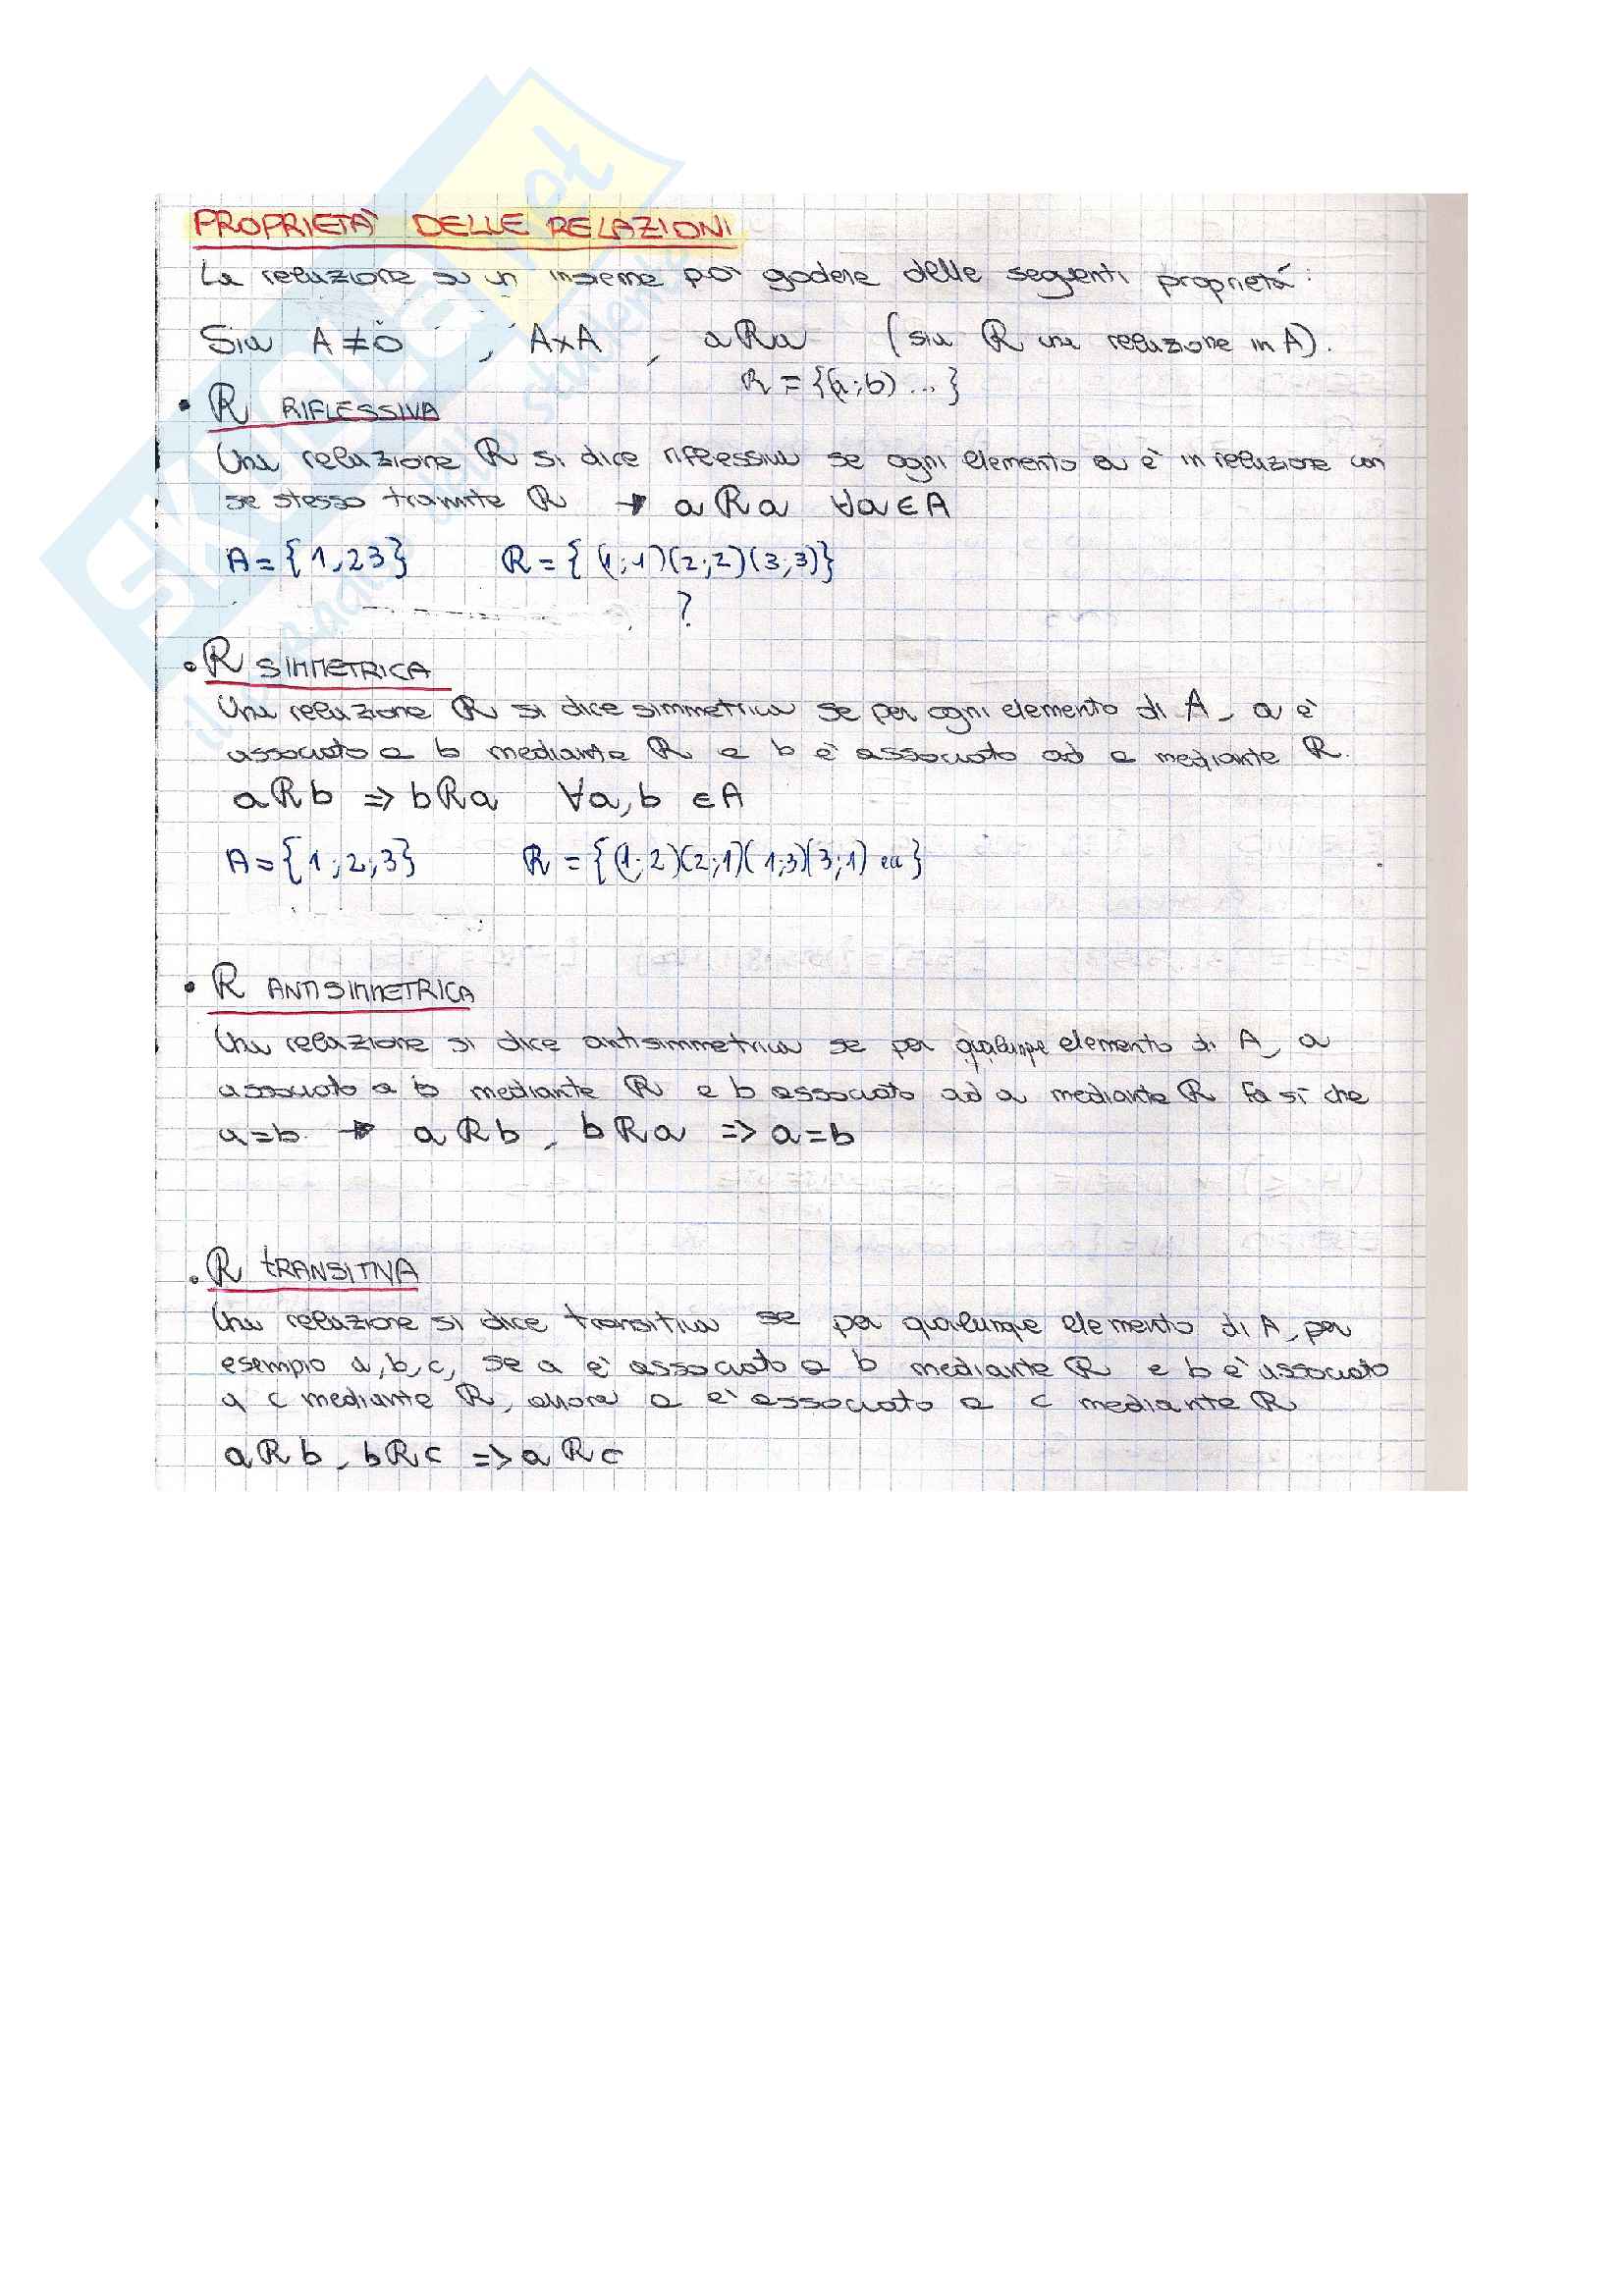 PROPRIETA' DELLE RELAZIONI
La relazione su un insieme può godere delle seguenti proprietà:
Sia A ≠ Ø , AxA , aRa (sia R una relazione in A).
R = {(a;b) ... }
• R RIFLESSIVA
Una relazione R si dice riflessiva se ogni elemento a è in relazione con
se stesso tramite R → a R a ∀a ∈ A
A = {1,2 3} R = { (1;1)(2;2)(3;3)}
?
• R SIMMETRICA
Una relazione R si dice simmetrica se per ogni elemento di A, a è
associato a b mediante R e b è associato ad a mediante R.
aRb => bRa ∀a,b ∈A
A = {1;2;3} R = {(1;2)(2;1)(1;3)(3;1) ecc }
• R ANTISIMMETRICA
Una relazione si dice antisimmetrica se per qualunque elemento di A, a
associato a b mediante R e b associato ad a mediante R fa sì che
a=b. → a R b , b R a => a=b
• R TRANSITIVA
Una relazione si dice transitiva se per qualunque elemento di A, per
esempio a,b,c, se a è associato a b mediante R e b è associato
a c mediante R, allora a è associato a c mediante R
aRb, bRc => aRc